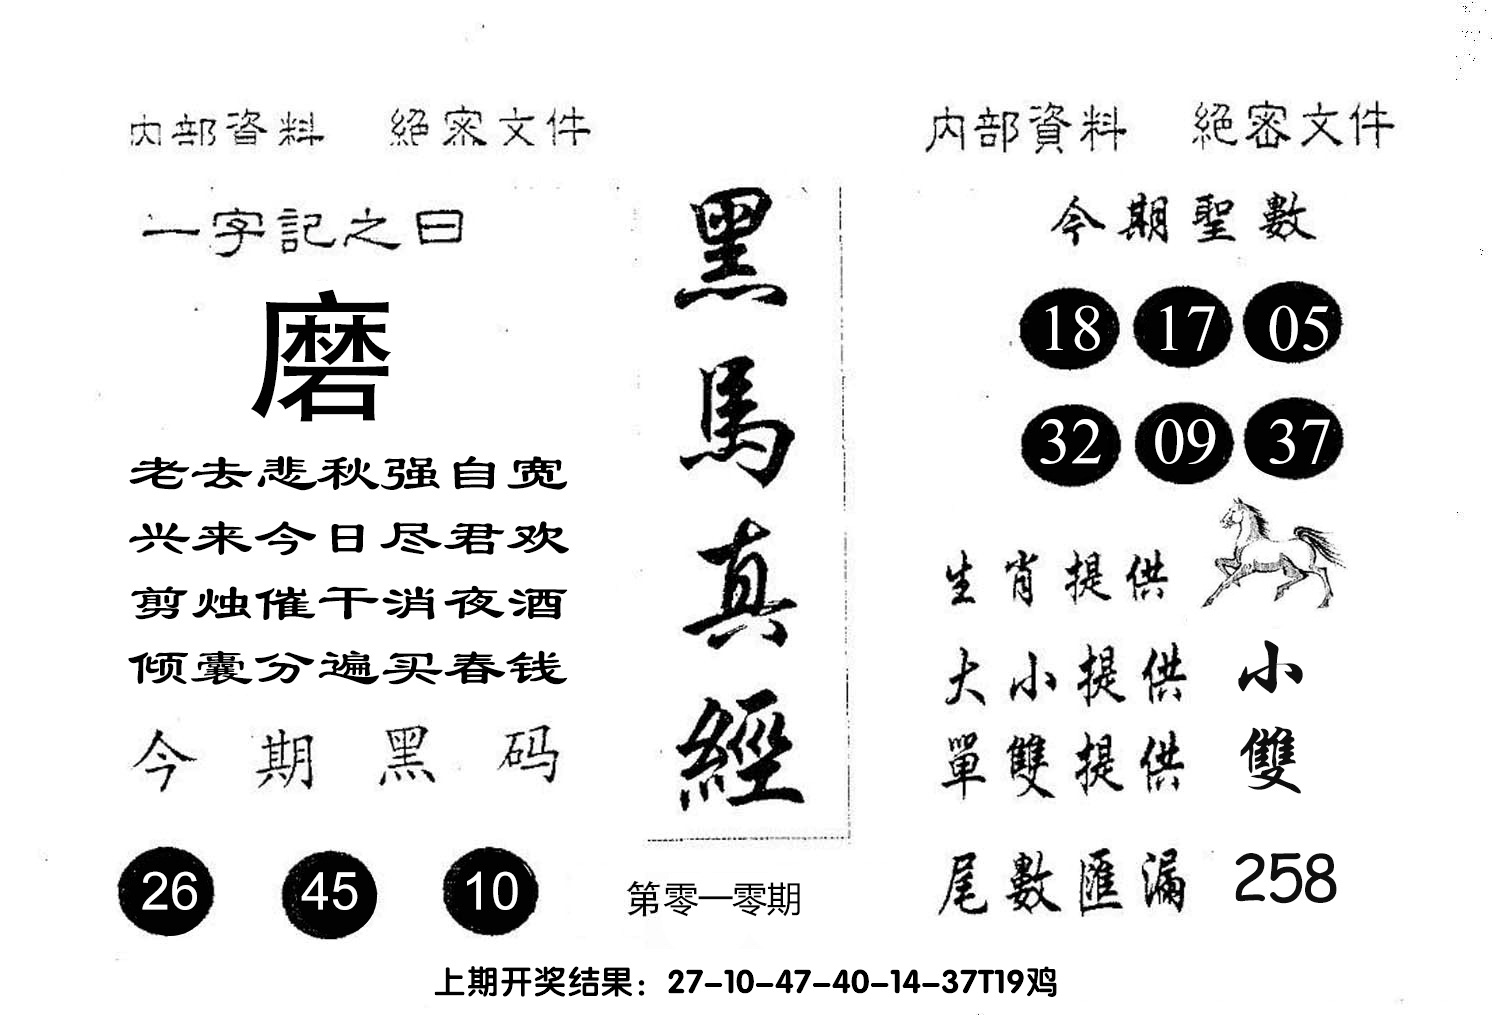 内部資料 絕密文件
一字記之曰
磨
老去悲秋强自宽
兴来今日尽君欢
剪烛催干消夜酒
倾囊分遍买春钱
今期黑码
26 45 10
黑馬真經
第零一零期
内部資料 絕密文件
今期聖數
18 17 05
32 09 37
生肖提供
大小提供 小
單雙提供 雙
尾數匯漏 258
上期开奖结果：27-10-47-40-14-37T19鸡